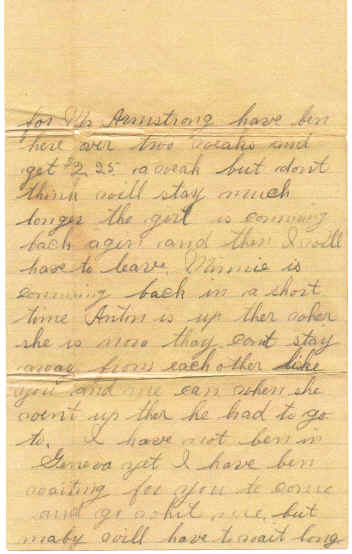 for Mr Armstrong have ben
here over two weaks and
get $2.25 a weak but dont
think will stay much
longer the girl is comming
back agen and then I will
have to leave. Minnie is
comming back in a short
time Anton is up ther wher
she is now thay cant stay
away from each other like
you and me can when she
went up ther he had to go
to. I have not ben in
Geneva yet I have ben
waiting for you to come
and go whit me, but
maby will have to wait long